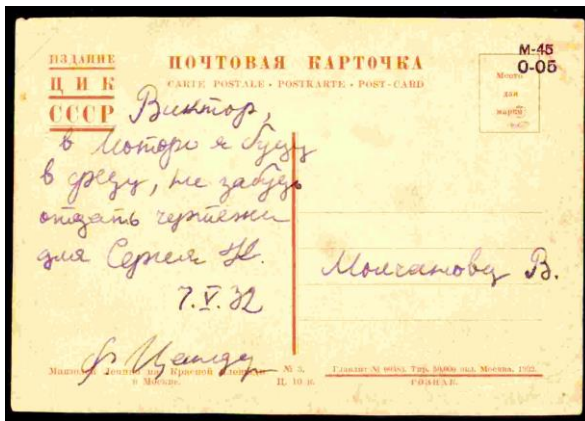 ИЗДАНИЕ
ЦИК
СССР
ПОЧТОВАЯ КАРТОЧКА
CARTE POSTALE - POSTKARTE - POST-CARD
М-45
0-05
Место
для
марки
Виктор,
в я буду
в среду, не забудь
отдать чертежи
для Сергея К.
7.V.32
Ф Цандер
Молчанову В.
Мавзолей Ленина на Красной площади
в Москве.
№ 3.
Ц. 10 к.
Главлит № Тир. 50.000 экз. Москва, 1932.
ГОЗНАК.